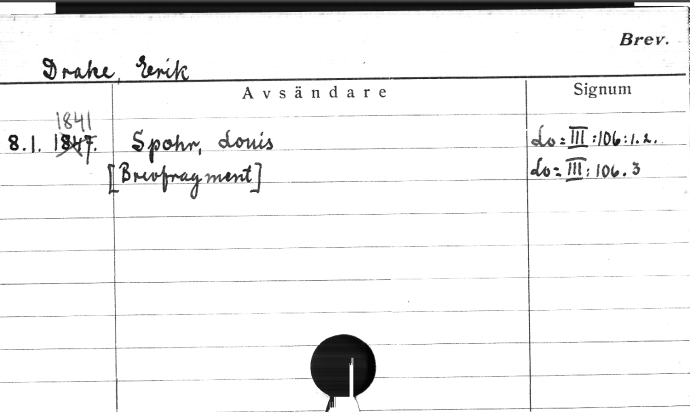 Brev.
Drake, Erik
Avsändare Signum
1841
8.1. 1847. Spohr, Louis Lo=III:106:1.2.
[Brevfragment] Lo=III:106.3